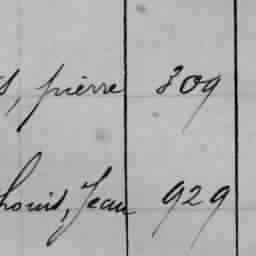 s, pierre 309
houis, Jean 929